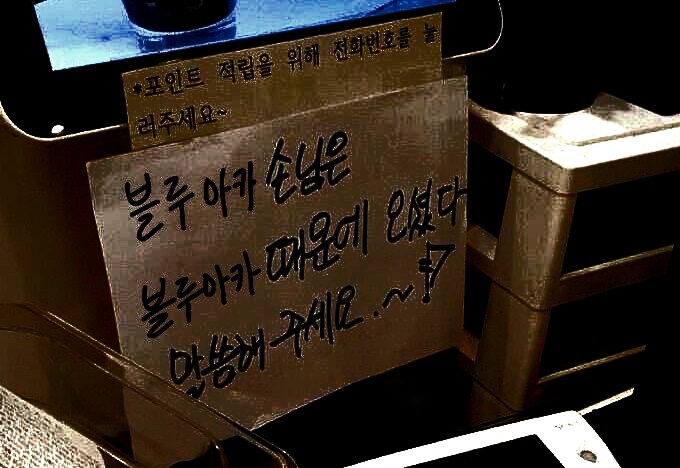 *포인트 적립을 위해 전화번호를 눌
러주세요~
블루 아카 손님은
블루아카 때문에 오셨다
말씀해 주세요.~!